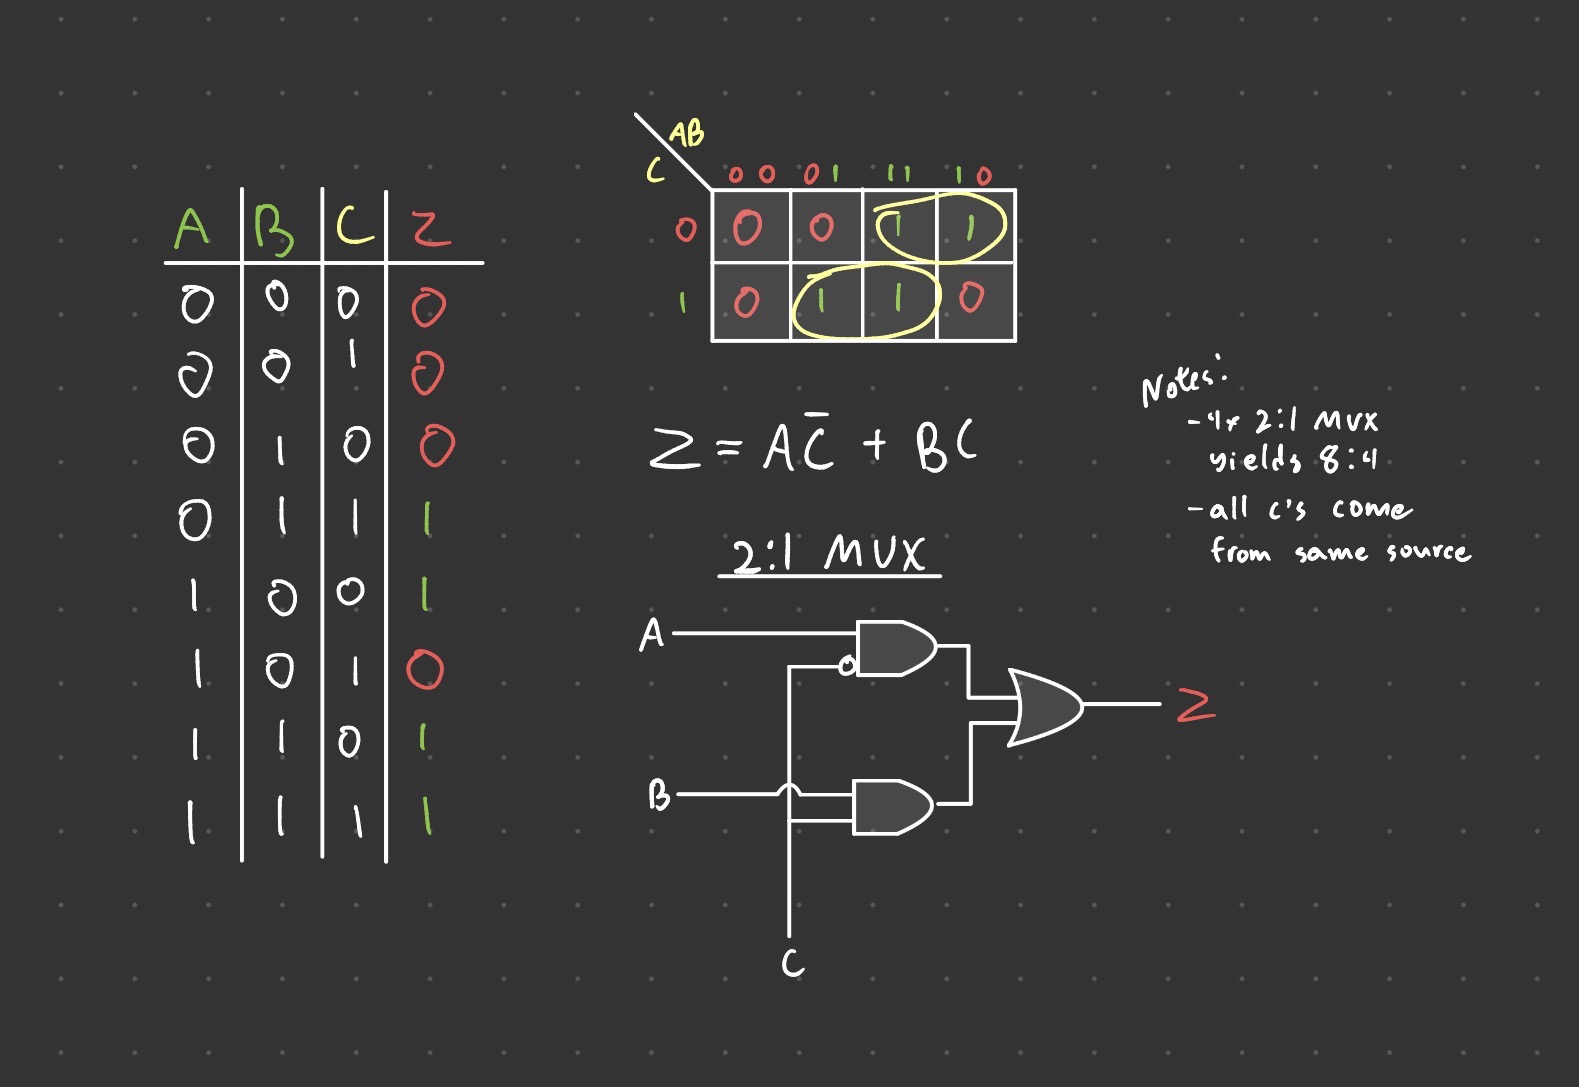 A B C Z
0 0 0 0
0 0 1 0
0 1 0 0
0 1 1 1
1 0 0 1
1 0 1 0
1 1 0 1
1 1 1 1
AB
C
00 01 11 10
0 0 0 1 1
1 0 1 1 0
Z = AC̅ + BC
2:1 MUX
A
B
C
Z
Notes:
- 4x 2:1 MUX
yields 8:4
- all c's come
from same source